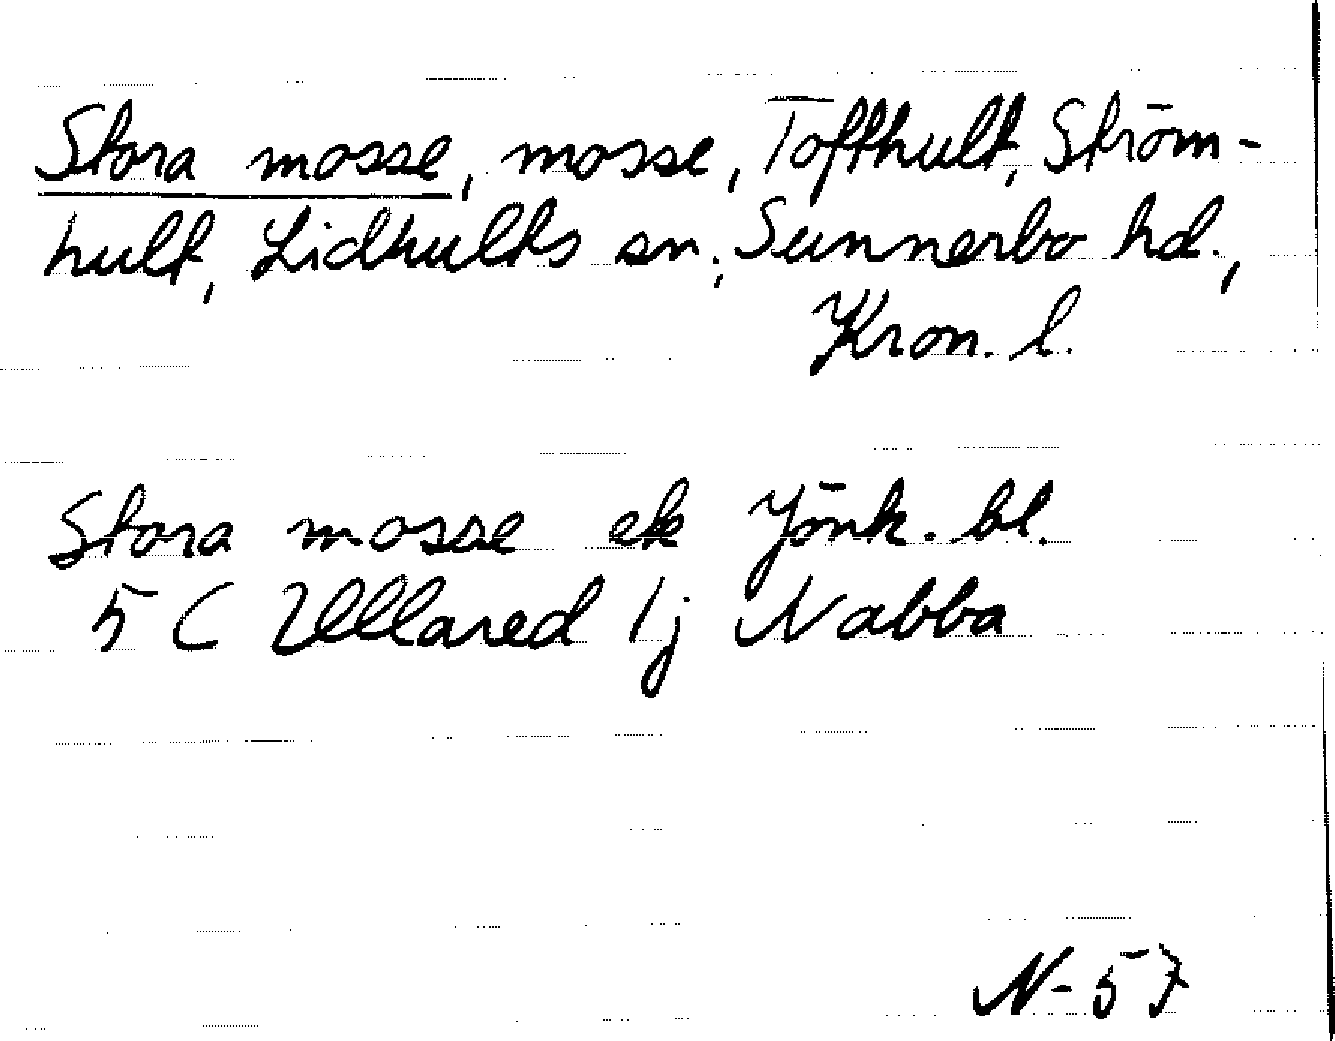 Stora mosse, mosse, Tofthult, Ström-
hult, Lidhults sn, Sunnerbo hd.,
Kron. l.
Stora mosse ek Jönk. bl.
5 C Ullared 1j Nabba
N-57